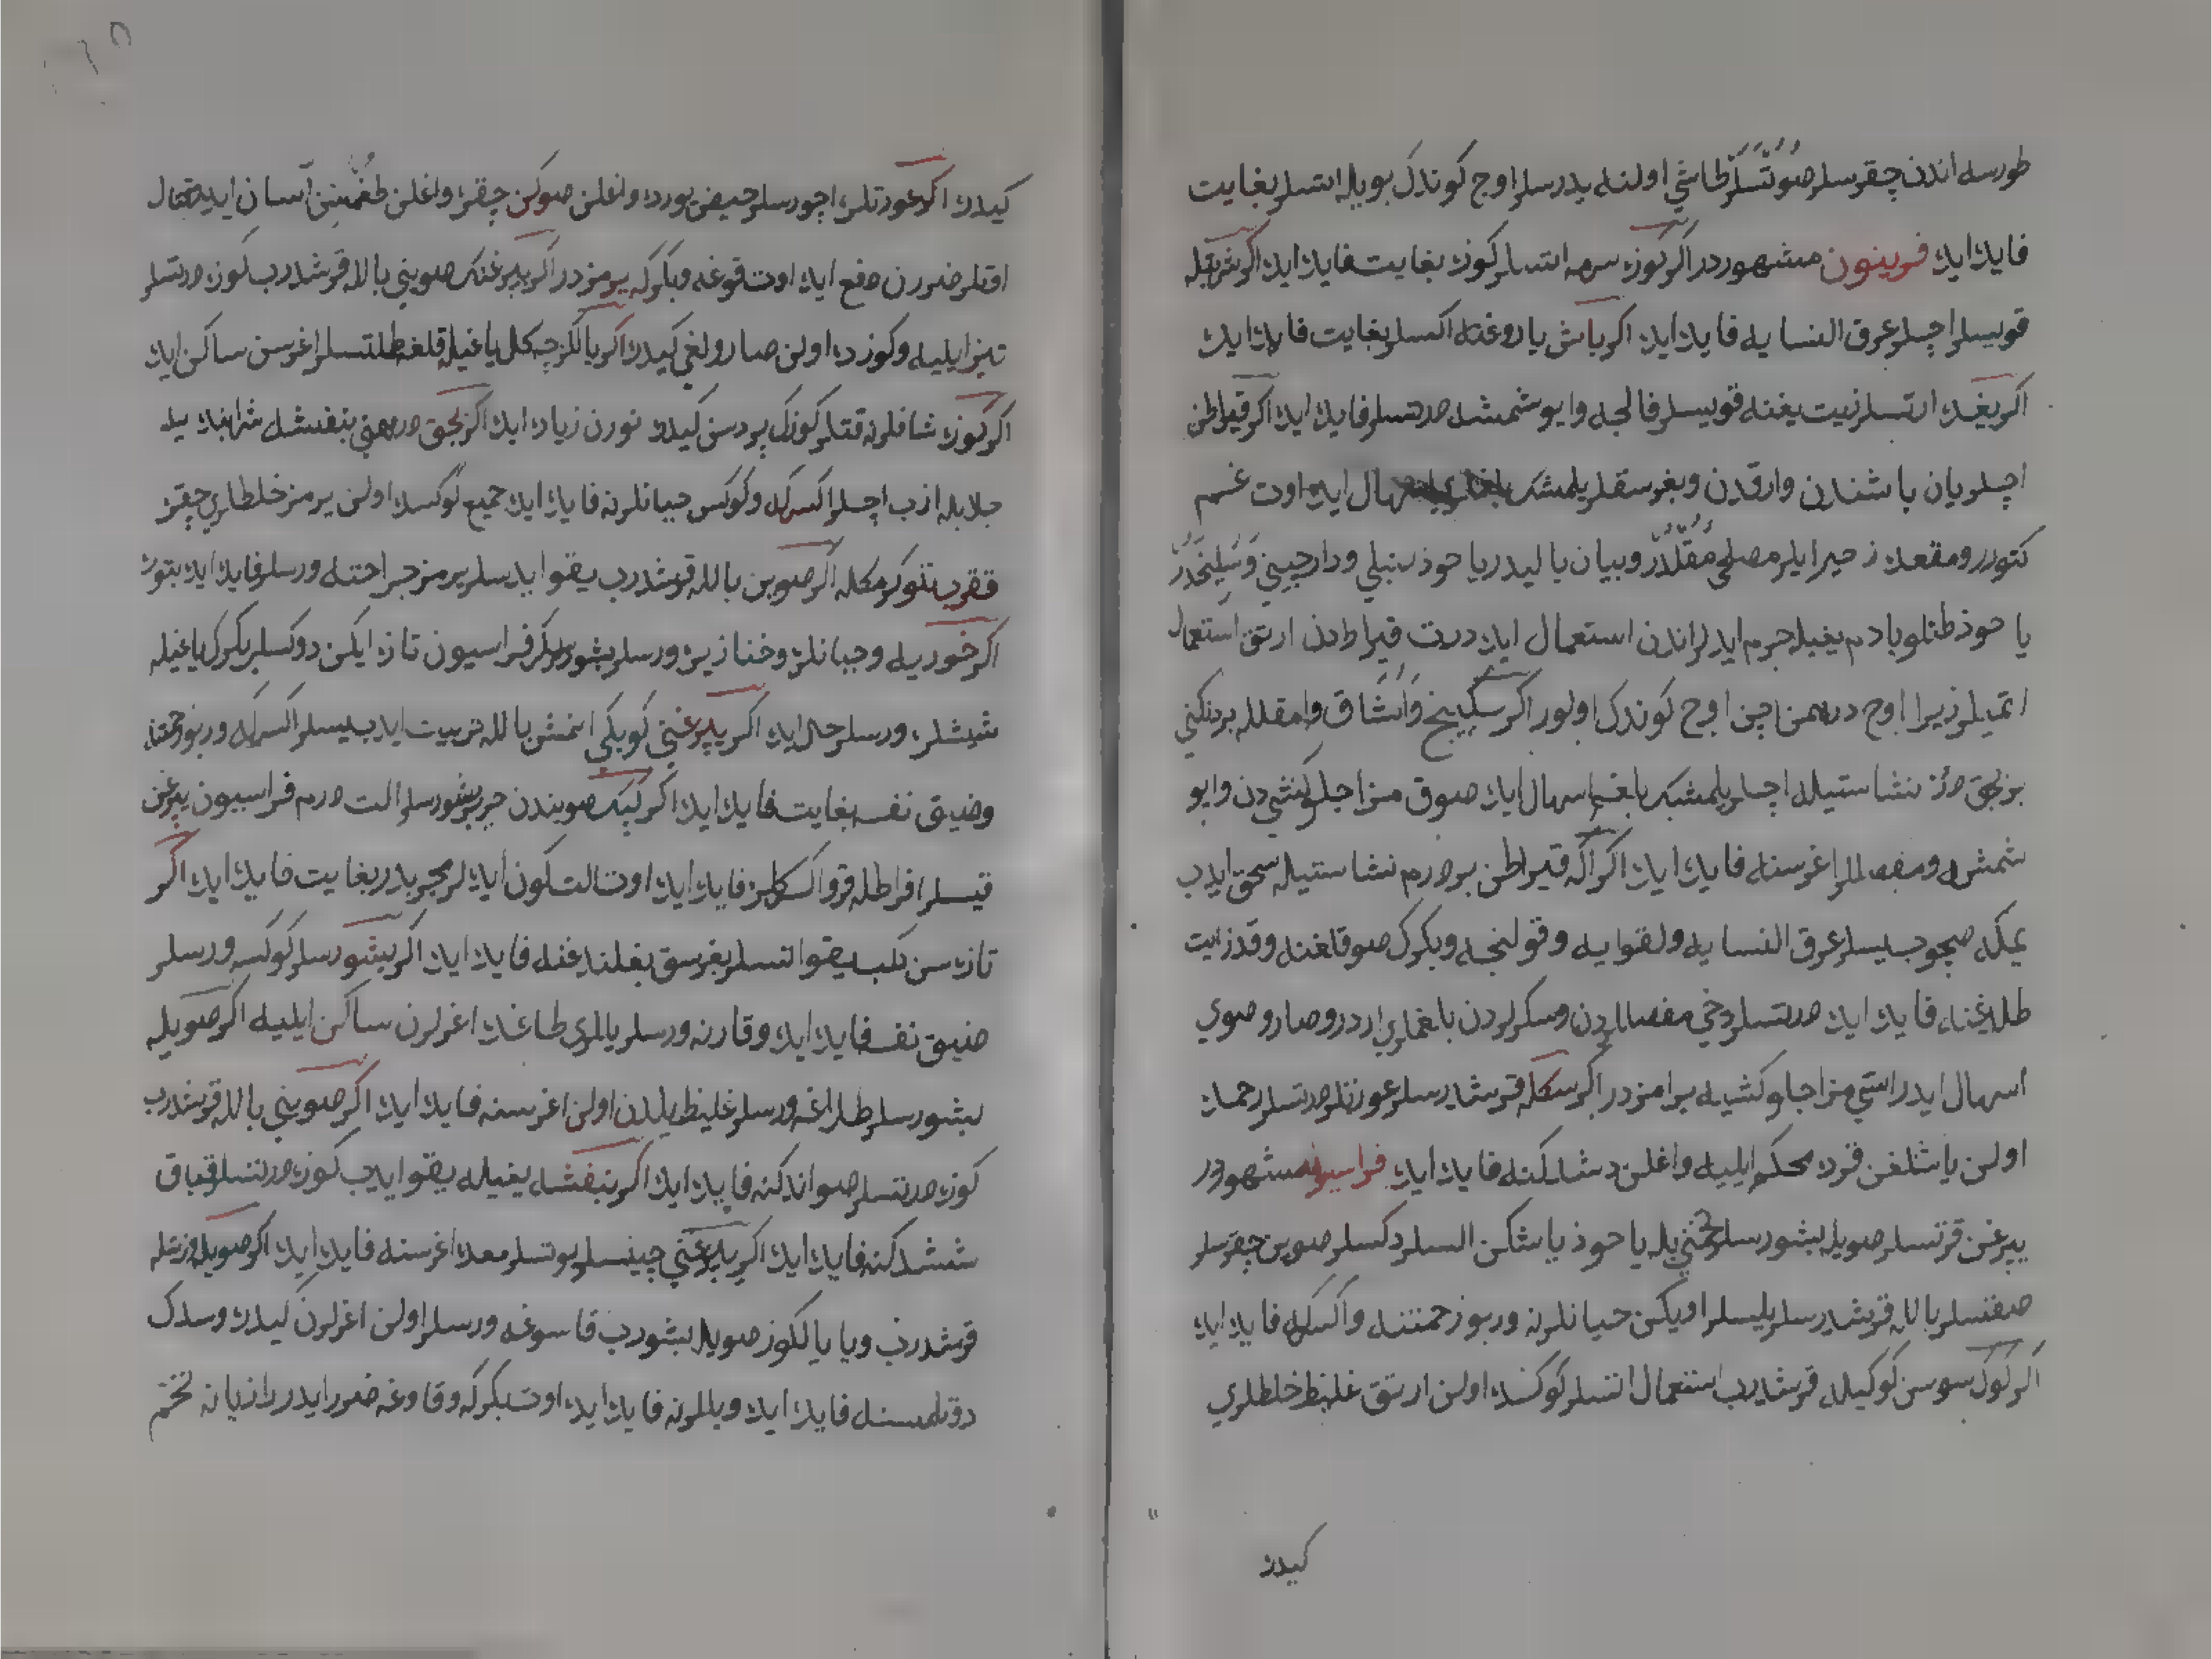 طورسه اندن چقرسلر صُوُتَسَلَر طاشي اولنه يدرسلر اوج كوندك بويله اتسلر بغايت
فايده ايده فربيون مشهوردر اكر كوزه سرمه اتسلر كوزه بغايت فايده ايده اكر شربتله
قويسلر اچسلر عرق النسايه فايده ايده اكر باش ياروغنه اكسلر بغايت فايده ايده
اكر يغده ارتسلر زيت يغنه قويسلر فالجه وايوشمشه درتسلر فايده ايده اكر قيراطن
اچسلر يان باشندن وارقدن وبغرسقلر يلمشك اسهال ايده اوت غسم
كتورر ومقعده زحير ايلر مصلحي مُقلدر وبيان باليدر ياحوذ سنبلي ودارچيني وَسَليخَدُر
ياحوذ طتلو بادم يغيله جرم ايدلر اندن استعمال ايده درت قيراطدن ارتق استعمال
اتميلر زيرا اوج درهمن اچن اوج كوندك اولور اكر سكبينج وَاُشَاق وامقلله بردنكني
بربحق درم نشاستيله اچسلر يلمشك بلغم اسهال ايده صوق مزاجلو كشي دن وايو
شمشه ومفصللر اغرسنه فايده ايده اكر اكه قيراطن بر درم نشاستيله سحق ايدب
يمكه صچوب يسلر عرق النسايه ولقوايه وقولنجه وبكرك صوقلغنه وقدزايت
طلايغنه فايده ايده درتسلر دخي مفصاللردن وسكرلردن بلغملري اردر وصارو صوي
اسهال ايدر استي مزاجلو كشيه يرامزدر اكر سكله قرشدرسلر عورتلر درتسلر رحمده
اولن ياشلغن قرده محكم ايليه واغلن دشالكنه فايده ايده فراسيون مشهوردر
يپرغن قرتسلر صويله بشورسلر تخميله ياحوذ ياشكن السلر دكسلر صوين چقرسلر
صقتسلر بالله قرشدرسلر يليسلر اويكن حيانلرنه وربو زحمتنه واكسركه فايده ايده
اكر كوك سوسن كوكيله قرشدرب استعمال اتسلر كوكسده اولن ارتق غليظ خلطلري
كيدره
كيدره اكر عورتلره اچورسلر حيض يورده واغلن صوكن چقره واغلن طغُمَسنِن آسان ايده صمتال
اوتلر ضررن دفع ايده اوت قوغه وبكركه يرمزدر اكر يپرغنك صويني بالله قرشدرب كوزه درتسلر
تيز ايليه وكوزده اولن صارولغي كيدره اكر يالكز چكل ياغيله قلغه طلتسلر اغرسن ساكن ايده
اكر كوزه شافلرنه قتلر كوزك پردسن كيدره نورن زياده ايده اكر بچق درهمني بنفشه شرابنده يله
جلابله ازب اچسلر اكسركه وكوكس حيانلرنه فايده ايده جميع كوكسده اولن يرمز خلطلري چقره
قفرب توكرمكله اكر صوين بالله قرشدرب يقوا يدسلر يرمز جراحتنه ورسلر فايده ايده بتوره
اكر خوريه وحبانلره وخنازيره ورسلر بشورلر اكر فراسيون تازه ايكن دوكسلر بكرك ياغيله
شيشلره ورسلر حل ايده اكر يپرغني كوبكي انمش بالله تربيت ايدب يسلر اكسركه وربو زحمتنه
وضيق نفسه بغايت فايده ايده اكر كپك صويندن جربر بشورسلر الت درم فراسيون يپرغن
قيسلر اقراطله قرو اكسركلره فايده ايده اوت الت كون ايدلر مجربدر بغايت فايده ايده اكر
تازه سن كلب يقو اتسلر بغرسق بغلندغنه فايده ايده اكر بشورسلر كوكسه ورسلر
ضيق نفسه فايده ايده وقارنه ورسلر يللري طاغده اغرلرن ساكن ايليه اكر صويله
بشورسلر طلاغه ورسلر غليظ يلدن اولن اغرسنه فايده ايده اكر صويني بالله قرشدرب
كوزه درتسلر صواندكنه فايده ايده اكر بنفشه يغيله يقو ايدب كوزه درتسلر قباق
شيشدكنه فايده ايده اكر يپرغني چينسلر يوتسلر معده اغرسنه فايده ايده اكر صويله وزيتله
قرشدرب ويا يالكوز صويله بشورب قاسوغه ورسلر اولن اغرلرن كيدره وسدك
دوتلمسنه فايده ايده ويللرنه فايده ايده اوت بكركه وقاوغه ضرر ايدر رازيانه تخم